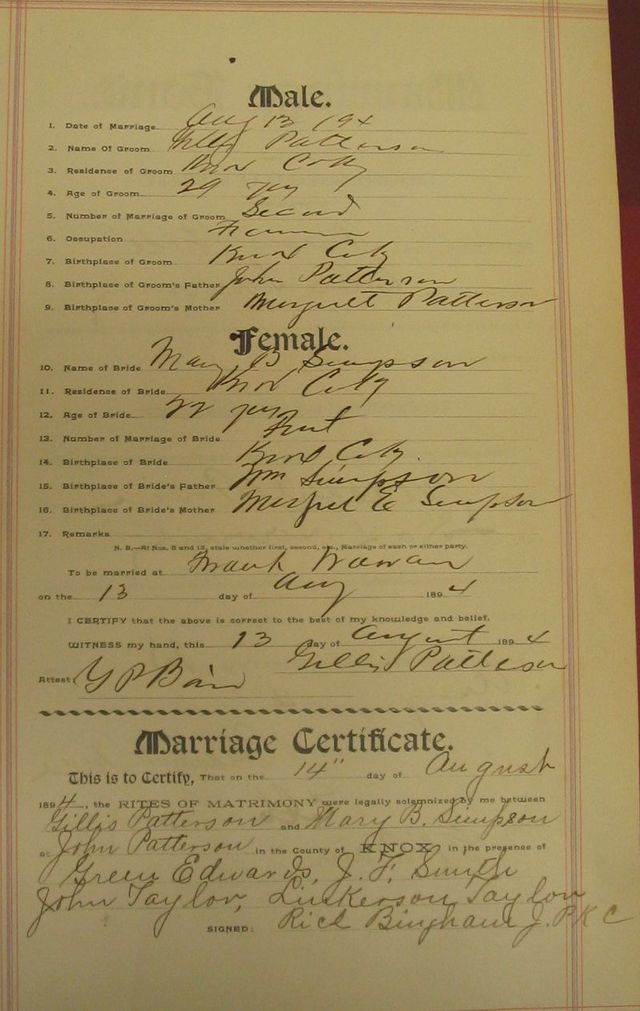 Male.
1. Date of Marriage Aug 13 194
2. Name Of Groom Gillis Patterson
3. Residence of Groom Knox Coty
4. Age of Groom 29 yrs
5. Number of Marriage of Groom Second
6. Occupation Farmer
7. Birthplace of Groom Knox Coty
8. Birthplace of Groom's Father John Patterson
9. Birthplace of Groom's Mother Margrett Patterson
Female.
10. Name of Bride Mary B Simpson
11. Residence of Bride Knox Coty
12. Age of Bride 22 yrs
13. Number of Marriage of Bride First
14. Birthplace of Bride Knox Coty.
15. Birthplace of Bride's Father Wm Simpson
16. Birthplace of Bride's Mother E Simpson
17. Remarks
N. B.—At Nos. 5 and 13, state whether first, second, etc., Marriage of each or either party.
To be married at Frank
on the 13 day of Aug 1894
I CERTIFY that the above is correct to the best of my knowledge and belief.
WITNESS my hand, this 13 day of August 1894
Gillis Patterson
Attest
Marriage Certificate.
This is to Certify, That on the 14" day of August
1894, the RITES OF MATRIMONY were legally solemnized by me between
Gillis Patterson and Mary B. Simpson
at John Patterson in the County of KNOX in the presence of
Green Edwards, J. F. Smith
John Taylor, Linkerson Taylor
SIGNED: Rich Bingham J. P. K C